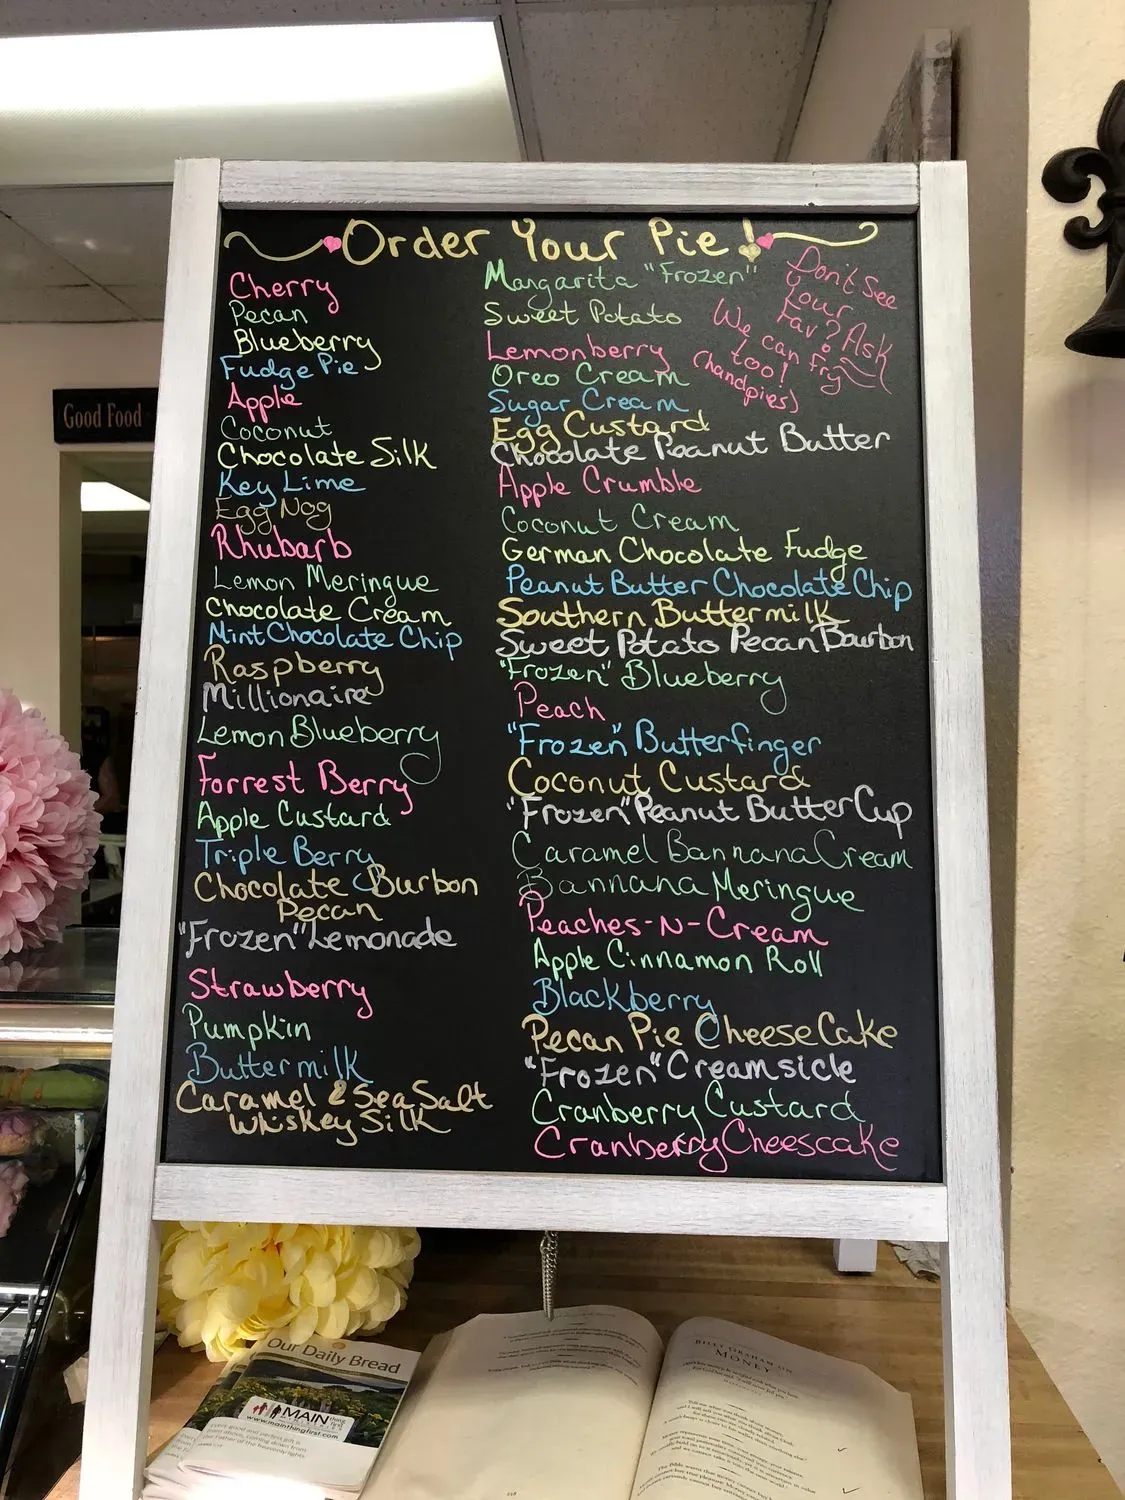 Order Your Pie!
Cherry
Pecan
Blueberry
Fudge Pie
Apple
Coconut
Chocolate Silk
Key Lime
Egg Nog
Rhubarb
Lemon Meringue
Chocolate Cream
Mint Chocolate Chip
Raspberry
Millionaire
Lemon Blueberry
Forrest Berry
Apple Custard
Triple Berry
Chocolate Burbon
Pecan
"Frozen" Lemonade
Strawberry
Pumpkin
Buttermilk
Caramel & Sea Salt
Whiskey Silk
Margarita "Frozen"
Sweet Potato
Lemonberry
Oreo Cream
Sugar Cream
Egg Custard
Chocolate Peanut Butter
Apple Crumble
Coconut Cream
German Chocolate Fudge
Peanut Butter Chocolate Chip
Southern Buttermilk
Sweet Potato Pecan Bourbon
"Frozen" Blueberry
Peach
"Frozen" Butterfinger
Coconut Custard
"Frozen" Peanut Butter Cup
Caramel Bannana Cream
Bannana Meringue
Peaches-N-Cream
Apple Cinnamon Roll
Blackberry
Pecan Pie CheeseCake
"Frozen" Creamsicle
Cranberry Custard
Cranberry Cheescake
Don't See
Your
Fav? Ask
We can fry
too!
(handpies)
Good Food
Our Daily Bread
MAIN thing first
www.mainthingfirst.com
BILLY GRAHAM ON
MONEY